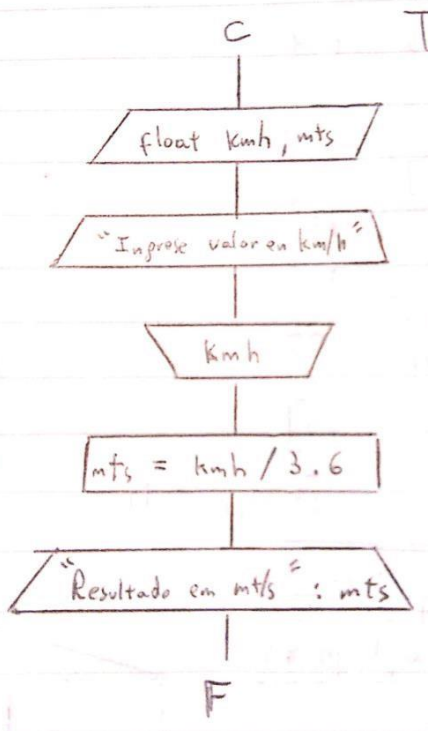 C
float kmh, mts
"Ingrese valor en km/h"
kmh
mts = kmh / 3.6
"Resultado em mt/s" : mts
F